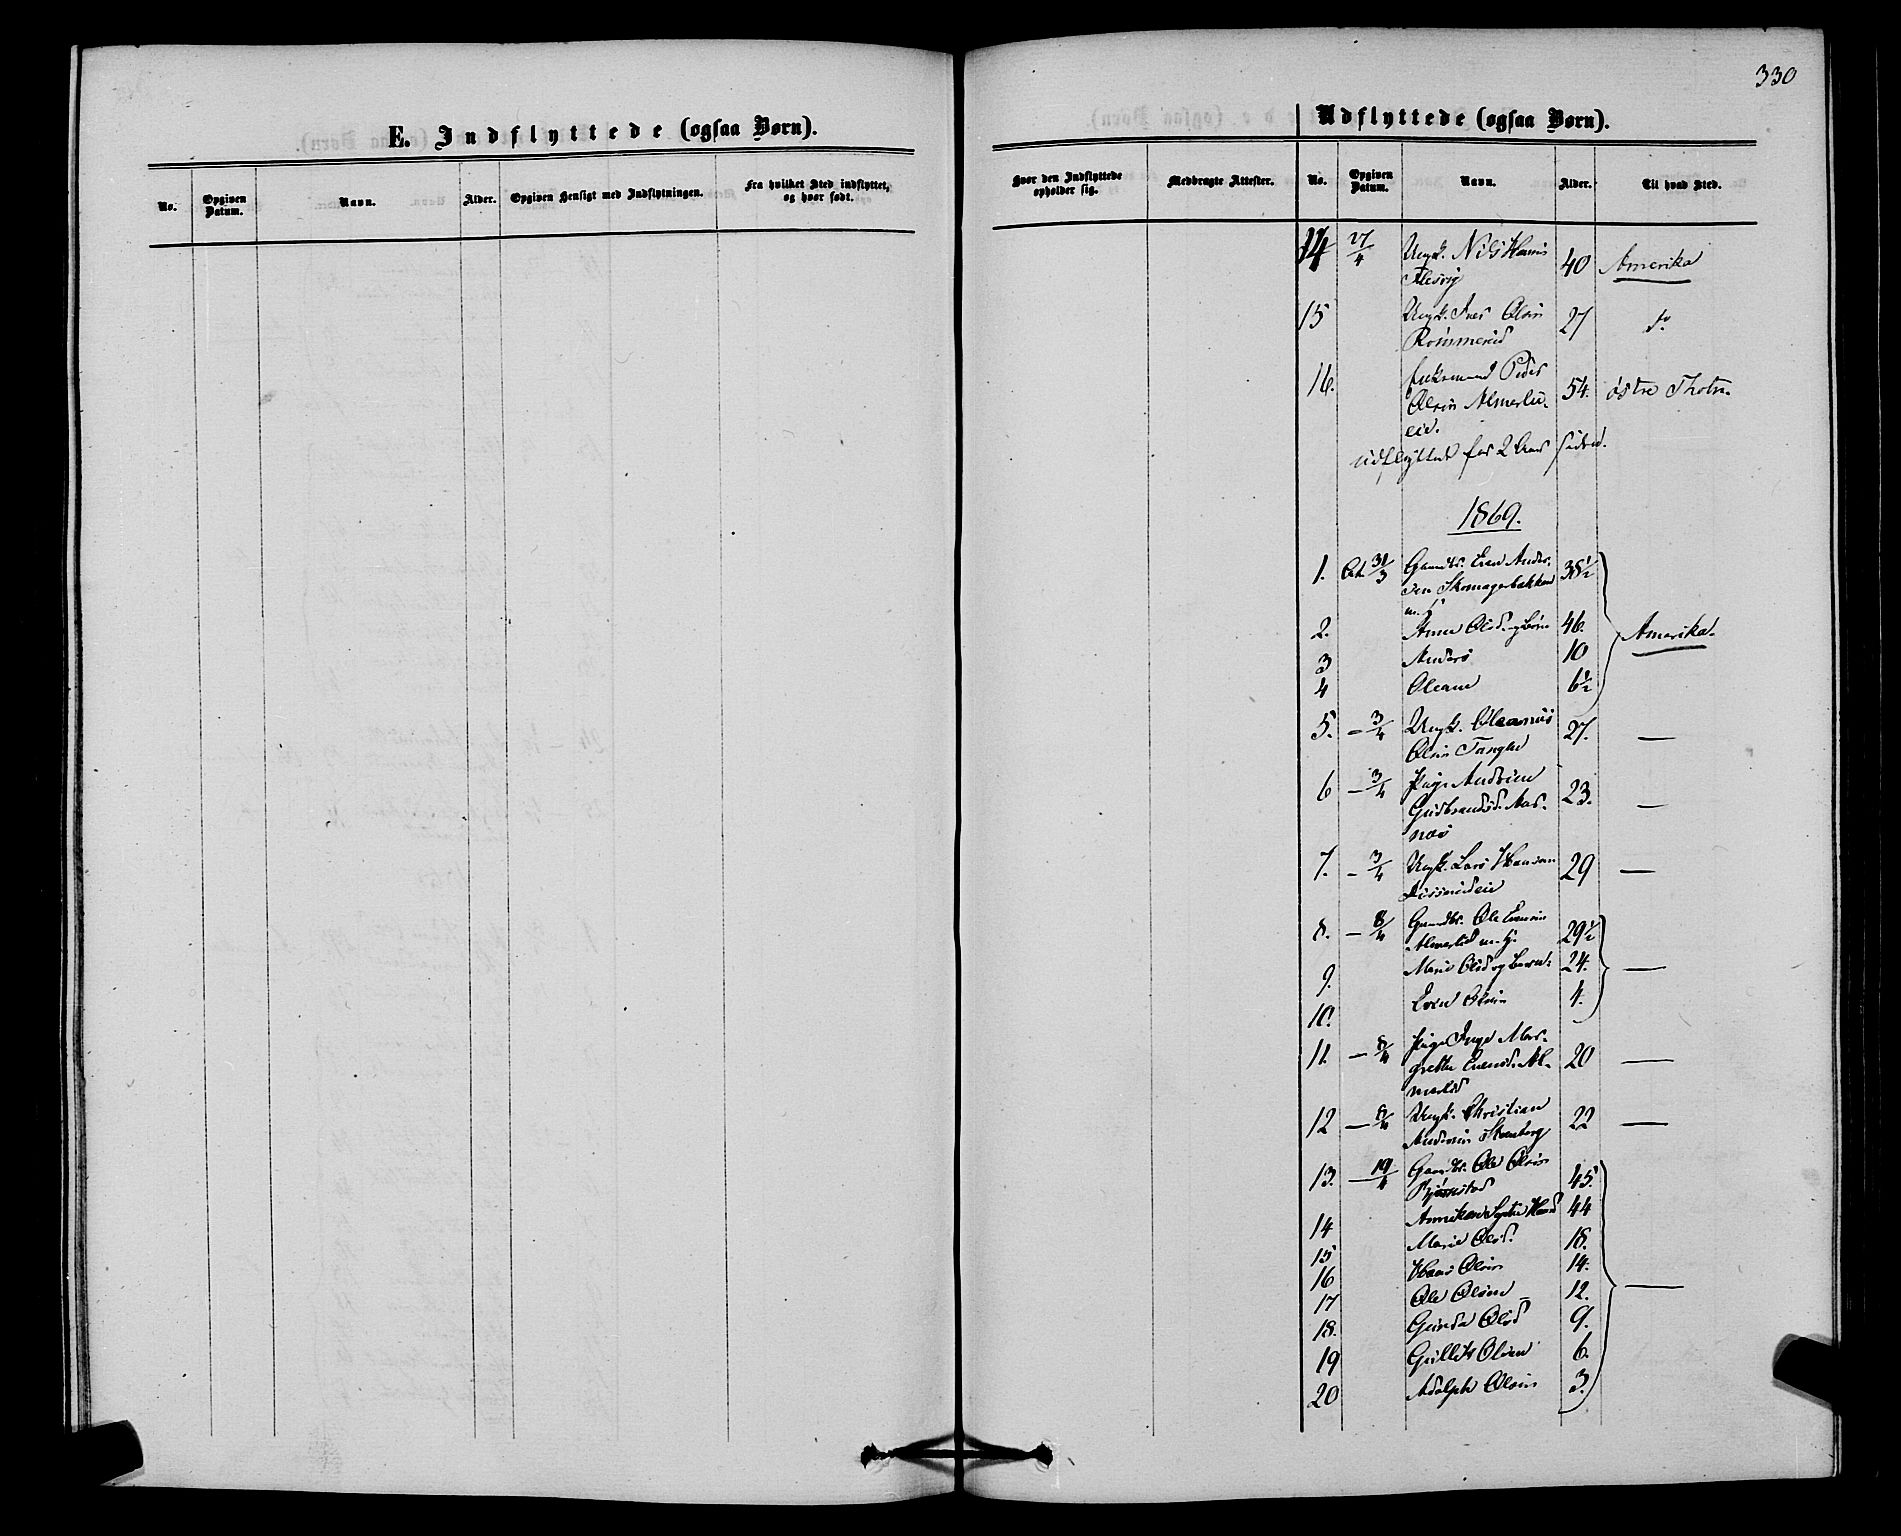 330
E. Indflyttede (ogsaa Børn).
No.
Opgiven Datum.
Navn.
Alder.
Opgiven Hensigt med Indflytningen.
Fra hvilket Sted indflyttet, og hvor født.
Hvor den Indflyttede opholder sig.
Medbragte Attester.
Udflyttede (ogsaa Børn).
No.
Opgiven Datum.
Navn.
Alder.
Til hvad Sted.
14 27/4 Ungk. Nils Hansen 40 Amerika
15 Ungk. Iver Olsen 27 do
16. Peder 54. østre Thoten
Olsen Almerlie-
eie.
udflyttede for 2 Aar siden.
1869.
1. Att 31/3 Gaardbr. Even Anders- 38½
sen Skomagerbakken
m. H.
2. Anne Olsd. og Børn 46.
3 Anders 10 Amerika.
4 Oleane 6½
5. - 3/4 Ungk. Oleanus 27. —
Olsen Tangen
6 - 3/4 Pige Andrine 23. —
Gudbrandsd. Aas-
næs
7. - 3/4 Ungk. Lars Hansen 29 —
8. - 8/4 Gaardbr. Ole Evensen 29½
Almerlid m. H.
9. Marie Olsd og Barn: 24. —
10. Even Olsen 4.
11. - 8/4 Pige Inge Mar- 20 —
grethe Evensd. Al-
merlid
12 - 8/4 Ungk. Christian 22 —
Andersen
13. - 19/4 Gaardbr. Ole Olsen 45.
14 Sophie Hansd 44
15 Marie Olsd. 18.
16 Hans Olsen 14.
17 Ole Olsen 12. —
18. Gunda Olsd 9.
19 Gullik Olsen 6.
20 Adolph Olsen 3.